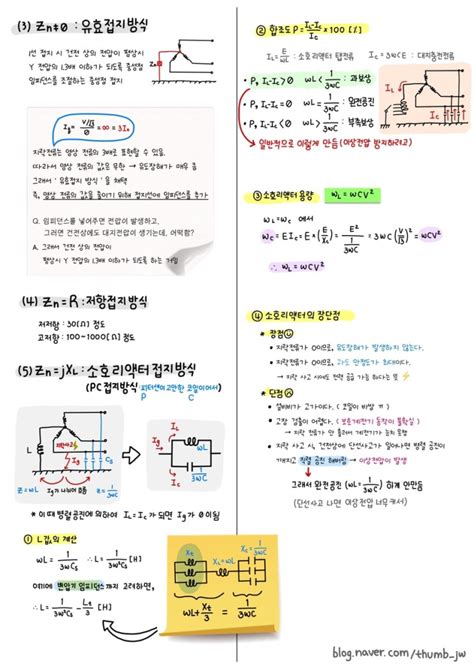 (3) Zn≠0 : 유효접지방식
1선 접지 시 건전 상의 전압이 평상시
Y 전압의 1.3배 이하가 되도록 중성점
임피던스를 조절하는 중성점 접지
Ig = (V/√3)/0 = ∞ = 3I₀
지락전류는 영상 전류의 3배로 표현할 수 있음.
따라서 영상 전류의 값은 무한 → 유도장해가 매우 큼
그래서 '유효접지 방식'을 채택
즉, 영상 전류의 값을 줄이기 위해 접지선에 임피던스를 추가
Q. 임피던스를 넣어주면 전압이 발생하고,
그러면 건전상에도 대지전압이 생기는데, 어떡함?
A. 그래서 건전 상의 전압이
평상시 Y 전압의 1.3배 이하가 되도록 하는 거임
(4) Zn=R : 저항접지방식
저저항 : 30[Ω] 정도
고저항 : 100~1000[Ω] 정도
(5) Zn=jXL : 소호리액터접지방식
(PC접지방식 피터센이고안한 코일이어서)
P C
L
지락사고
Ig
Cs
Z=ωL
Ig가 나뉘어 흐름
IL
Ig
ωL
3ωC
Ic
* 이 때 병렬공진에 의하여 IL=Ic가 되면 Ig가 0이 됨
① L값의 계산
ωL = 1/3ωCs ∴ L = 1/3ω²Cs [H]
여기에 변압기 임피던스까지 고려하면,
∴ L = 1/3ω²Cs - Lt/3 [H]
Xt
XL=ωL
1/3ωC
ωL + Xt/3 = 1/3ωC
② 합조도 P = (IL-Ic)/Ic × 100 [%]
IL = E/ωL : 소호리액터 탭전류 Ic = 3ωCE : 대지충전전류
• P, IL-Ic > 0 ωL < 1/3ωC : 과보상
• P, IL-Ic = 0 ωL = 1/3ωC : 완전공진
• P, IL-Ic < 0 ωL > 1/3ωC : 부족보상
→ 일반적으로 이렇게 만듦 (이상전압 방지하려고)
③ 소호리액터 용량 ωL = ωCV²
ωL = ωC 에서
ωC = EIc = E×(E/Xc) = E²/(1/3ωC) = 3ωC(V/√3)² = ωCV²
∴ ωL = ωCV²
④ 소호리액터의 장단점
* 장점
• 지락전류가 0이므로, 유도장해가 발생하지 않는다.
• 지락전류가 0이므로, 과도 안정도가 최대이다.
→ 지락 사고 시에도 전력 공급 가능 하다는 말
* 단점
• 설비비가 고가이다. (코일이 비쌈 ㅠ)
• 고장 검출이 어렵다. (보호계전기 동작이 불확실)
→ 지락전류가 안 흘러서 계전기 눈치 못챔
• 지락 사고 시, 건전상에 단선사고가 일어나면 병렬 공진이
깨지고 직렬 공진 해버림 → 이상전압이 발생
그래서 완전공진 (ωL = 1/3ωC) 하게 안만듦
(단선사고 나면 이상전압 너무 커서)
blog.naver.com/thumb_jw